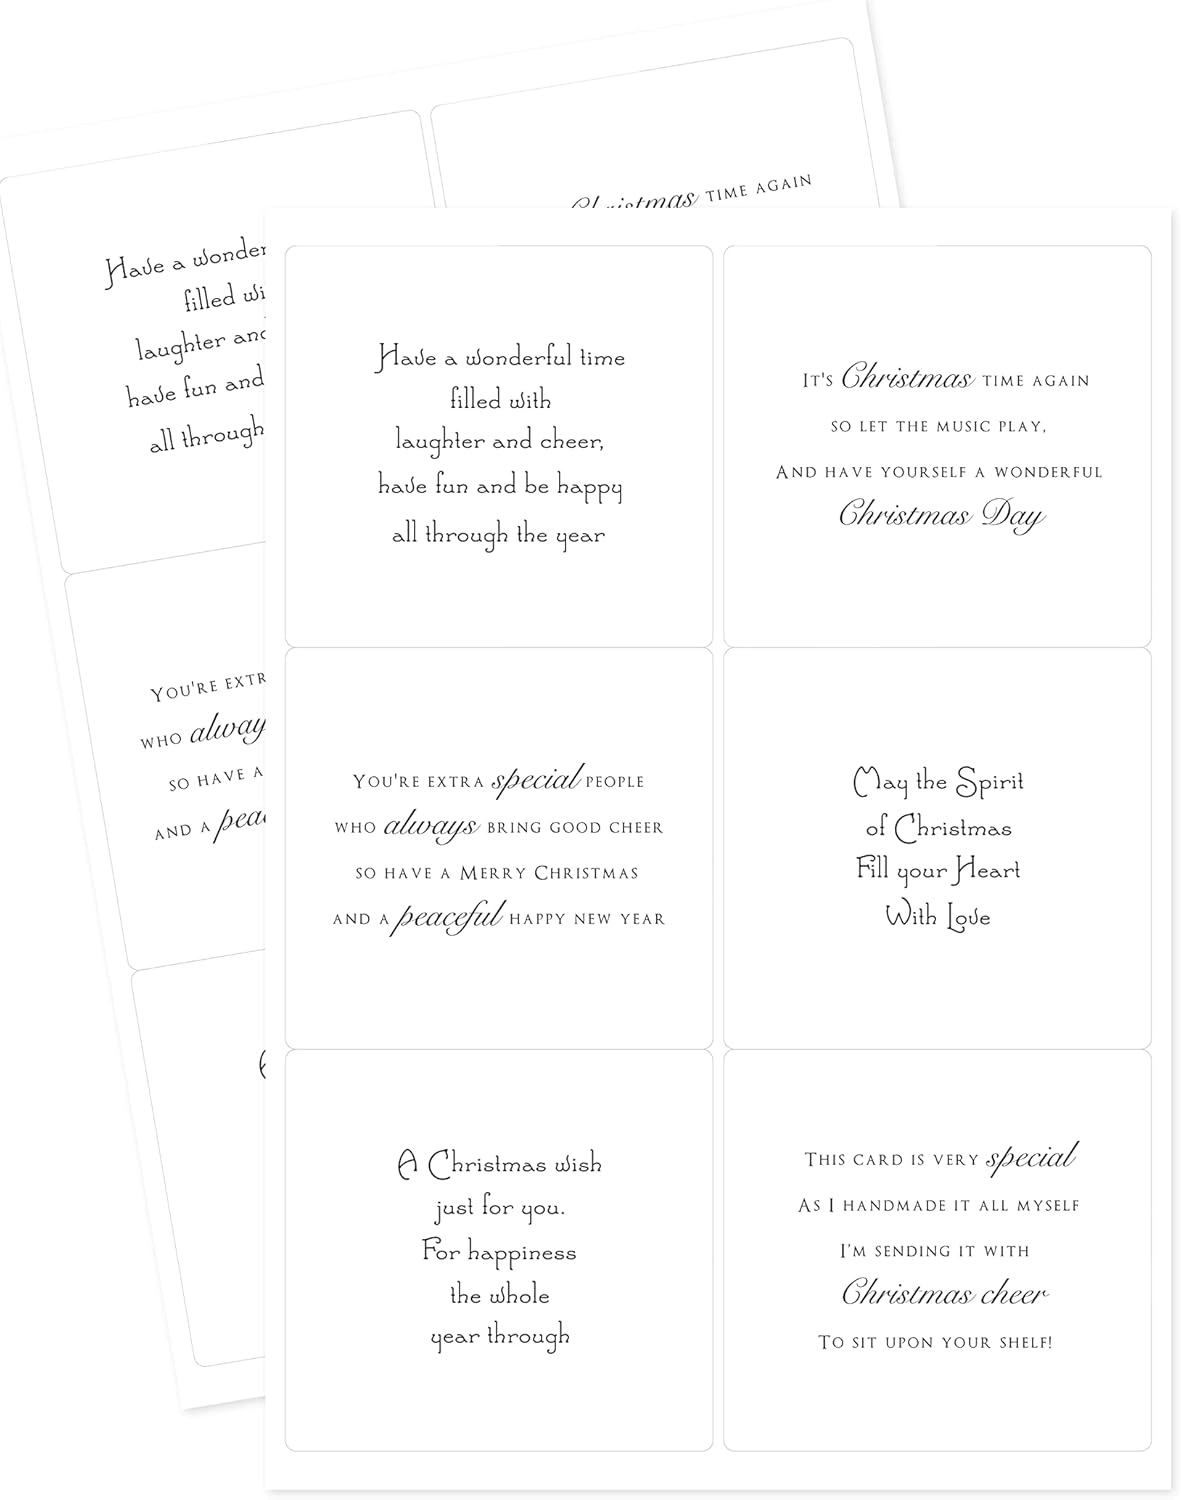 Christmas TIME AGAIN
Have a
filled
laughter
have fun and
all through
YOU'RE
WHO
SO HAVE A
AND A
A
Have a wonderful time
filled with
laughter and cheer,
have fun and be happy
all through the year
IT'S Christmas TIME AGAIN
SO LET THE MUSIC PLAY,
AND HAVE YOURSELF A WONDERFUL
Christmas Day
YOU'RE EXTRA special PEOPLE
WHO always BRING GOOD CHEER
SO HAVE A MERRY CHRISTMAS
AND A peaceful HAPPY NEW YEAR
May the Spirit
of Christmas
Fill your Heart
With Love
A Christmas wish
just for you.
For happiness
the whole
year through
THIS CARD IS VERY special
AS I HANDMADE IT ALL MYSELF
I'M SENDING IT WITH
Christmas cheer
TO SIT UPON YOUR SHELF!